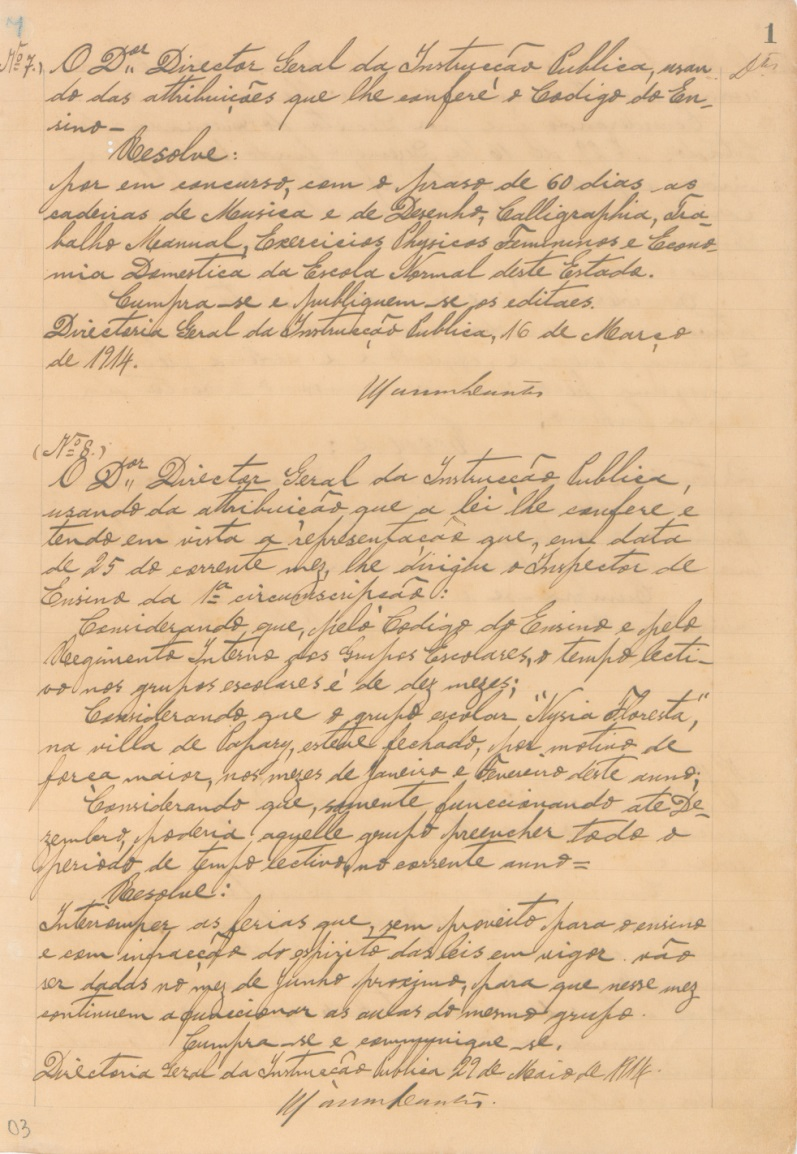 1
Nº 7.) O Dor Director Geral da Instrucção Publica, usan-
do das attribuições que lhe confere o Codigo do En-
sino—
Resolve:
por em concurso, com o praso de 60 dias as
cadeiras de Musica e de Desenho, Calligraphia, Tra-
balho Manual, Exercicios Physicos Femininos e Econo-
mia Domestica da Escola Normal deste Estado.
Cumpra-se e publiquem-se os editaes.
Directoria Geral da Instrucção Publica, 16 de Março
de 1914.
(Nº 8.)
O Dor Director Geral da Instrucção Publica,
usando da attribuição que a lei lhe confere e
tendo em vista a representação que, em data
de 25 do corrente mez, lhe dirigiu o Inspector de
Ensino da 1ª circumscripção:
Considerando que, pelo Codigo do Ensino e pelo
Regimento Interno dos Grupos Escolares, o tempo lecti-
vo nos grupos escolares é de dez mezes;
Considerando que o grupo escolar "Nysia Floresta",
na villa de Papary, esteve fechado, por motivo de
força maior, nos mezes de Janeiro e Fevereiro deste anno;
Considerando que, somente funccionando até De-
zembro, poderia aquelle grupo preencher todo o
periodo de tempo lectivo, no corrente anno=
Resolve:
Interromper as ferias que, sem proveito para o ensino
e com infracção do espirito das leis em vigor vão
ser dadas no mez de Junho proximo, para que nesse mez
continuem a funccionar as aulas do mesmo grupo.
Cumpra-se e communique-se.
Directoria Geral da Instrucção Publica 29 de Maio de 1914.
03